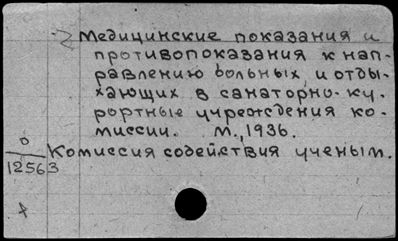 Медицинские показания и
противопоказания к нап-
равлению больных и отды-
хающих в санаторно-ку-
рортные учреждения ко-
миссии. М., 1936.
О
12563
Комиссия содействия ученым.